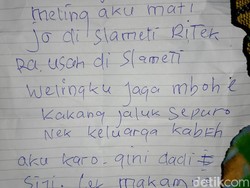 meling aku mati
jo di slameti RiTek
Ra. usah di Slameti
welingku jaga mboh e
Kakang jaluk sepuro
Nek keluarga kabeh
aku karo. gini dadi
Siji. makam
detikcom